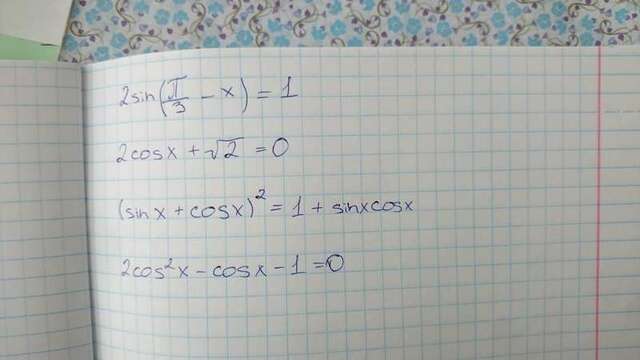 2sin(π/3 - x) = 1
2cosx + √2 = 0
(sinx + cosx)² = 1 + sinxcosx
2cos²x - cosx - 1 = 0